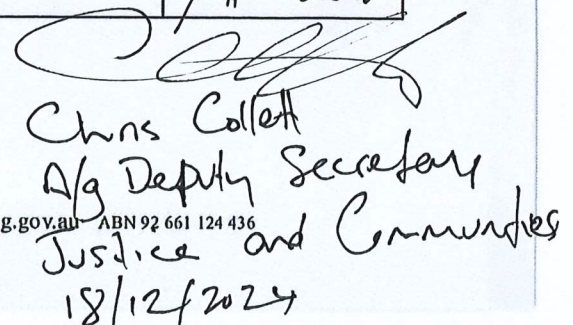 Chris Collett
A/g Deputy Secretary
g.gov.au ABN 92 661 124 436
Justice and Communities
18/12/2024